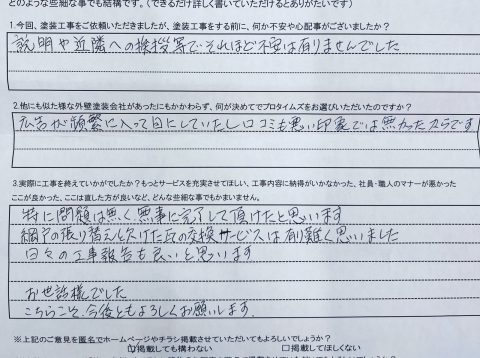 どのような些細な事でも結構です。（できるだけ詳しく書いていただけるとありがたいです）
1.今回、塗装工事をご依頼いただきましたが、塗装工事をする前に、何か不安や心配事がございましたか？
説明や近隣への挨拶等でそれほど不安は有りませんでした
2.他にも似た様な外壁塗装会社があったにもかかわらず、何が決めてでプロタイムズをお選びいただいたのですか？
広告が頻繁に入って目にしていたし口コミも悪い印象では無かったからです
3.実際に工事を終えていかがでしたか？もっとサービスを充実させてほしい、工事内容に納得がいかなかった、社員・職人のマナーが悪かった
ここが良かった、ここは直した方が良いなど、どんな些細な事でもかまいません。
特に問題は無く無事に完了して頂けたと思います
網戸の張り替えと欠けた瓦の交換サービスは有り難く思いました
日々の工事報告も良いと思います
お世話様でした
こちらこそ今後ともよろしくお願いします.
※上記のご意見を匿名でホームページやチラシ掲載させていただいてもよろしいでしょうか？
☑掲載しても構わない □掲載してほしくない